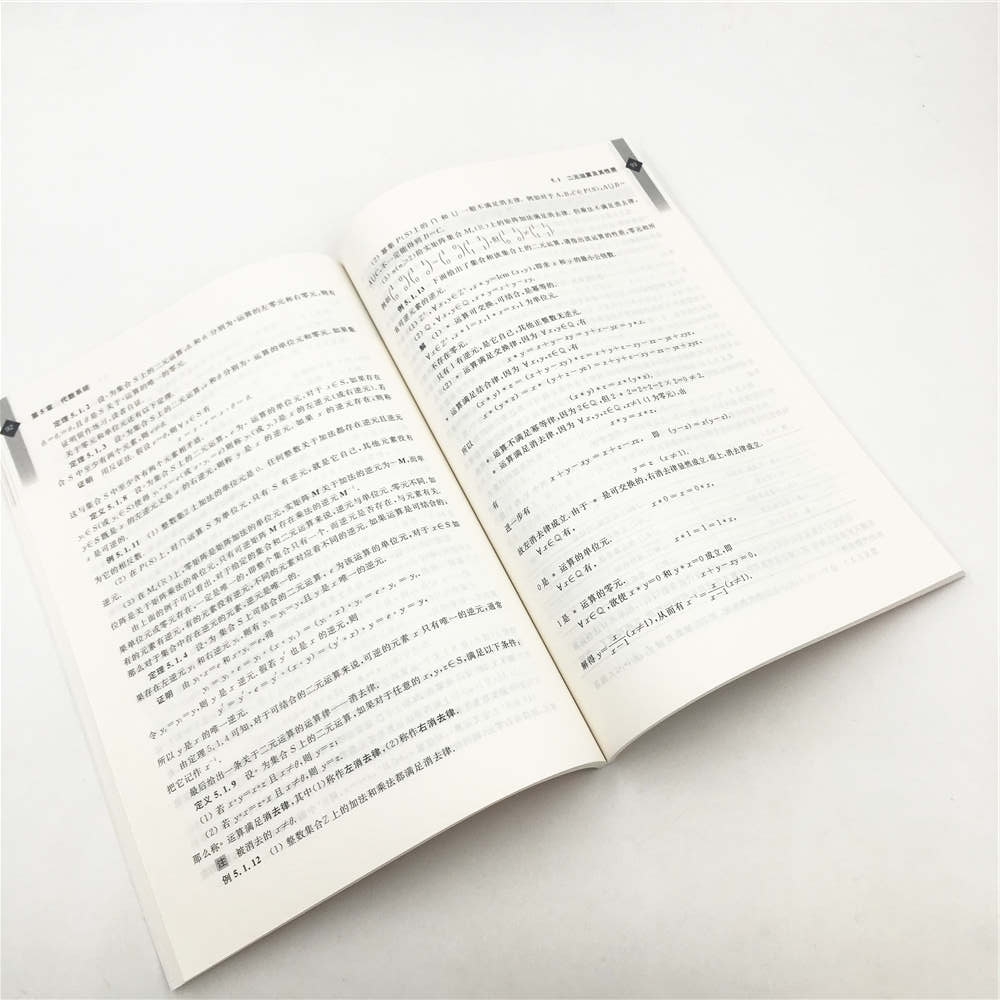 第5章 代数系统
定理 5.1.2 设∘为集合 S 上的二元运算,θₗ和θᵣ分别为∘运算的左零元和右零元,则有
θₗ=θᵣ=θ,且θ是 S 关于∘运算的唯一的零元.
证明留作练习,读者自证.
关于零元和单位元还有以下定理.
定理 5.1.3 设∘为集合 S 上的二元运算,e和θ分别为∘运算的单位元和零元,如果集
合 S 中至少有两个元素,则 e≠θ.
证明 用反证法.假设 e=θ,则∀x∈S 有
这与集合 S 中至少含有两个元素相矛盾.
定义 5.1.8 设∘为集合 S 上的二元运算,e为∘运算的单位元,对于 x∈S,如果存在
是可逆的.
例 5.1.11 (1) 整数集Z上加法的单位元是 0,任何整数关于加法都存在逆元且逆元
为它的相反数.
(2) 在 P(S)上,对∩运算 S 为单位元,只有 S 有逆元,就是它自己,其他元素没有
逆元.
(3) 在 Mₙ(R)上,零矩阵是矩阵加法的单位元,实矩阵 M 关于加法的逆元为−M,而单
位阵是关于矩阵乘法的单位元,只有可逆矩阵 M 存在乘法的逆元 M⁻¹.
由上面的例子可以看出,对于给定的集合和二元运算来说,逆元与单位元、零元不同,如
果单位元或零元存在,一定是唯一的,即整个集合只有一个,而逆元是否存在,与元素有关.
有的元素有逆元,有的元素没有逆元,不同的元素对应着不同的逆元.如果运算是可结合的,
那么对于集合中存在逆元的元素,逆元是唯一的.
定理 5.1.4 设∘为集合 S 上可结合的二元运算,e为该运算的单位元,对于 x∈S 如
果存在左逆元 yₗ 和右逆元 yᵣ,则有 yₗ=yᵣ=y,且 y 是 x 唯一的逆元.
证明 由 yₗ∘x=e 和 x∘yᵣ=e,得
yₗ = yₗ∘e = yₗ∘(x∘yᵣ) = (yₗ∘x)∘yᵣ = e∘yᵣ = yᵣ
令 yₗ=yᵣ=y,则 y 是 x 逆元.假若 y′ 也是 x 的逆元,则
y′ = y′∘e = y′∘(x∘y) = (y′∘x)∘y = e∘y = y,
所以 y 是 x 的唯一逆元.
由定理 5.1.4 可知,对于可结合的二元运算来说,可逆的元素 x 只有唯一的逆元,通常
把它记作 x⁻¹.
最后给出一条关于二元运算的运算律——消去律.
定义 5.1.9 设∘为集合 S 上的二元运算,如果对于任意的 x,y,z∈S,满足以下条件:
(1) 若 x∘y=x∘z 且 x≠θ,则 y=z;
(2) 若 y∘x=z∘x 且 x≠θ,则 y=z.
那么称∘运算满足消去律,其中(1)称作左消去律,(2)称作右消去律.
注 被消去的 x≠θ.
例 5.1.12 (1) 整数集合Z上的加法和乘法都满足消去律.
5.1 二元运算及其性质
(2) 幂集 P(S)上的∩和∪一般不满足消去律.例如对于 A,B,C∈P(S),A∪B=
A∪C,不一定能得到 B=C.
例 5.1.13 下面给出了集合和该集合上的二元运算,请指出该运算的性质、零元和所
有可逆元素的逆元.
(1) Z⁺,∀x,y∈Z⁺,x*y=lcm(x,y),即求 x 和 y 的最小公倍数.
(2) Q,∀x,y∈Q,x*y=x+y−xy.
解 (1) *运算可交换、可结合,是幂等的.
∀x∈Z⁺,x*1=x,1*x=x,1为单位元.
不存在零元.
只有1有逆元,是它自己,其他正整数无逆元.
(2) *运算满足交换律,因为∀x,y∈Q,有
x*y = x+y−xy = y+x−yx = y*x.
*运算满足结合律,因为∀x,y,z∈Q,有
所以
(x*y)*z = x*(y*z).
*运算不满足幂等律,因为 2∈Q,但 2*2=2+2−2×2=0≠2.
*运算满足消去律,因为∀x,y,z∈Q,x≠1(1为零元),由
x+y−xy = x+z−xz, 即 (y−z)=x(y−z).
有
y=z (x≠1).
进一步有
故左消去律成立;由于*是可交换的,右消去律显然成立.综上,消去律成立.
∀x∈Q有,
x*0 = x = 0*x,
0是*运算的单位元.
∀x∈Q有,
x*1 = 1 = 1*x,
1是*运算的零元.
∀x∈Q,欲使 x*y=0 和 y*x=0 成立,即
x+y−xy=0,
解得 y=x/(x−1)(x≠1),从而有 x⁻¹=x/(x−1)(x≠1).